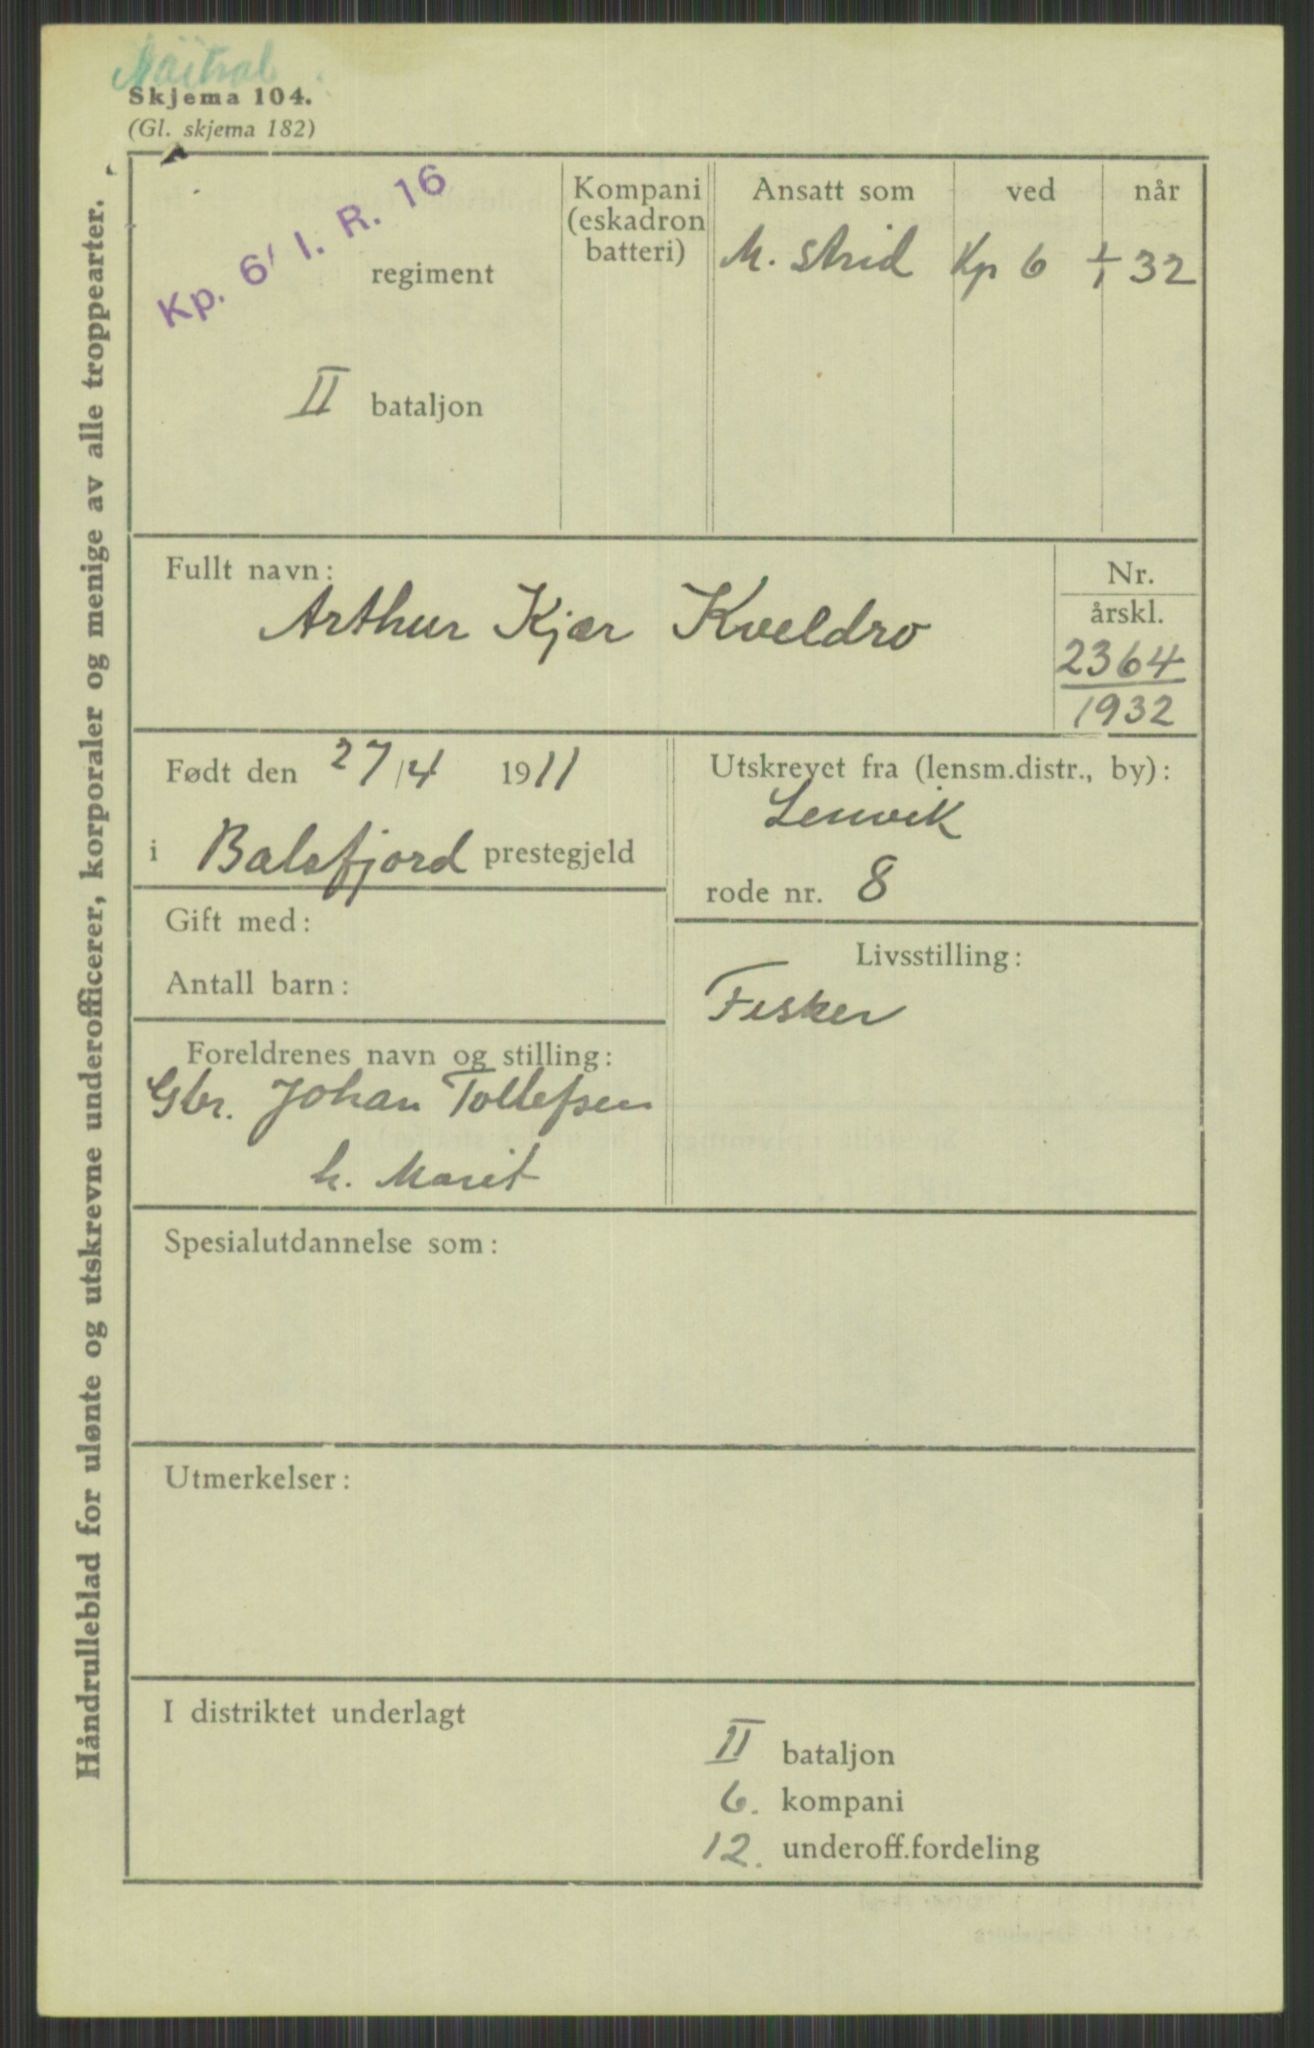 Nøitral
Skjema 104.
(Gl. skjema 182)
Håndrulleblad for ulønte og utskrevne underofficerer, korporaler og menige av alle troppearter.
Kp. 6/ I. R. 16
regiment
II bataljon
Kompani
(eskadron
batteri)
Ansatt som
M. strid
ved
Kp 6
når
1/1 32
Fullt navn:
Arthur Kjær Kveldro
Nr.
årskl.
2364
1932
Født den 27/4 1911
i Balsfjord prestegjeld
Utskrevet fra (lensm.distr., by):
Lenvik
rode nr. 8
Gift med:
Antall barn:
Livsstilling:
Fisker
Foreldrenes navn og stilling:
Gbr. Johan Tollefsen
h. Marit
Spesialutdannelse som:
Utmerkelser:
I distriktet underlagt
II bataljon
6. kompani
12. underoff.fordeling